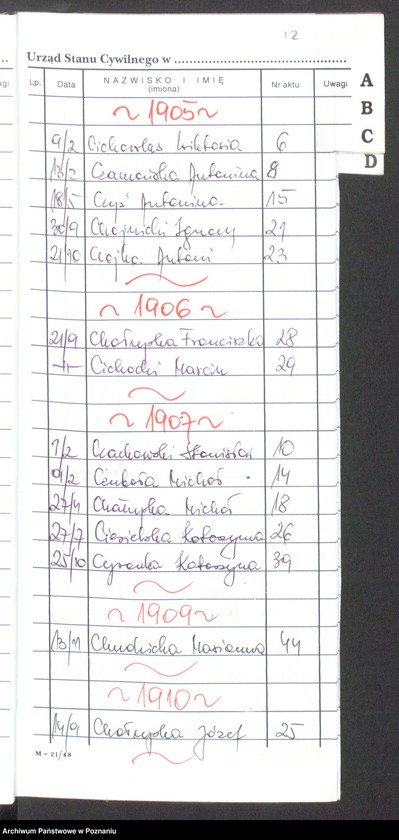 12
Urząd Stanu Cywilnego w
Lp. Data NAZWISKO I IMIĘ (imiona) Nr aktu Uwagi
A
B
C
D
~ 1905 ~
9/2 Cichowlas Wiktoria 6
13/2 Czarnecka Antonina 8
18/5 Antonina 15
30/9 Chojnicki Ignacy 21
21/10 Czajka Antoni 23
~ 1906 ~
21/9 Chałupka Franciszka 28
-11- Cichocki Marcin 29
~ 1907 ~
7/2 Czachowski Stanisław 10
9/2 Cenkała Michał 14
27/4 Chałupka Michał 18
27/7 Ciesielska Katarzyna 26
25/10 Cyranka Katarzyna 39
~ 1909 ~
13/11 Chudzicka Marianna 44
~ 1910 ~
14/9 Chałupka Józef 25
M - 21/48
Archiwum Państwowe w Poznaniu